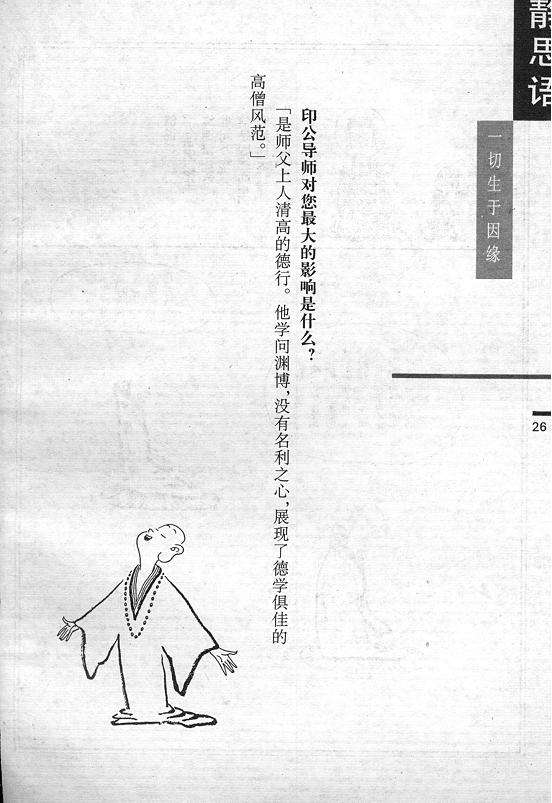 静思语
一切生于因缘
26
印公导师对您最大的影响是什么？
「是师父上人清高的德行。他学问渊博，没有名利之心，展现了德学俱佳的
高僧风范。」